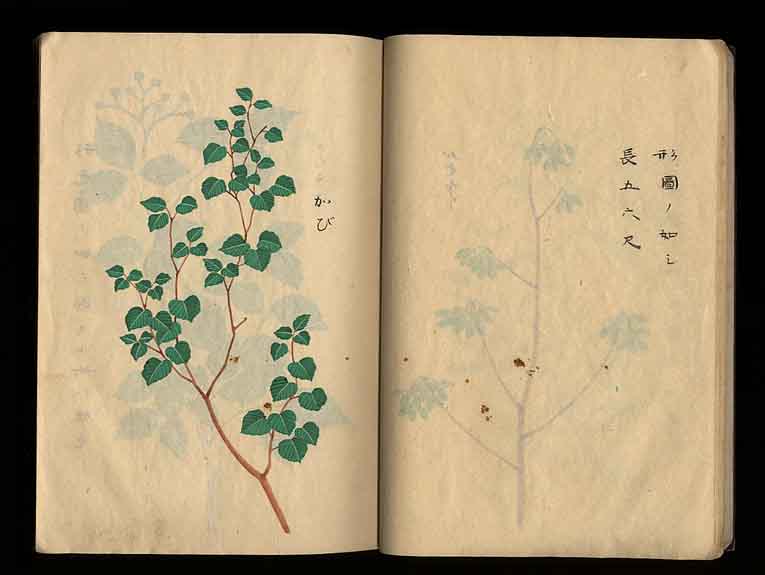 形圖ノ如シ
長五六尺
がび